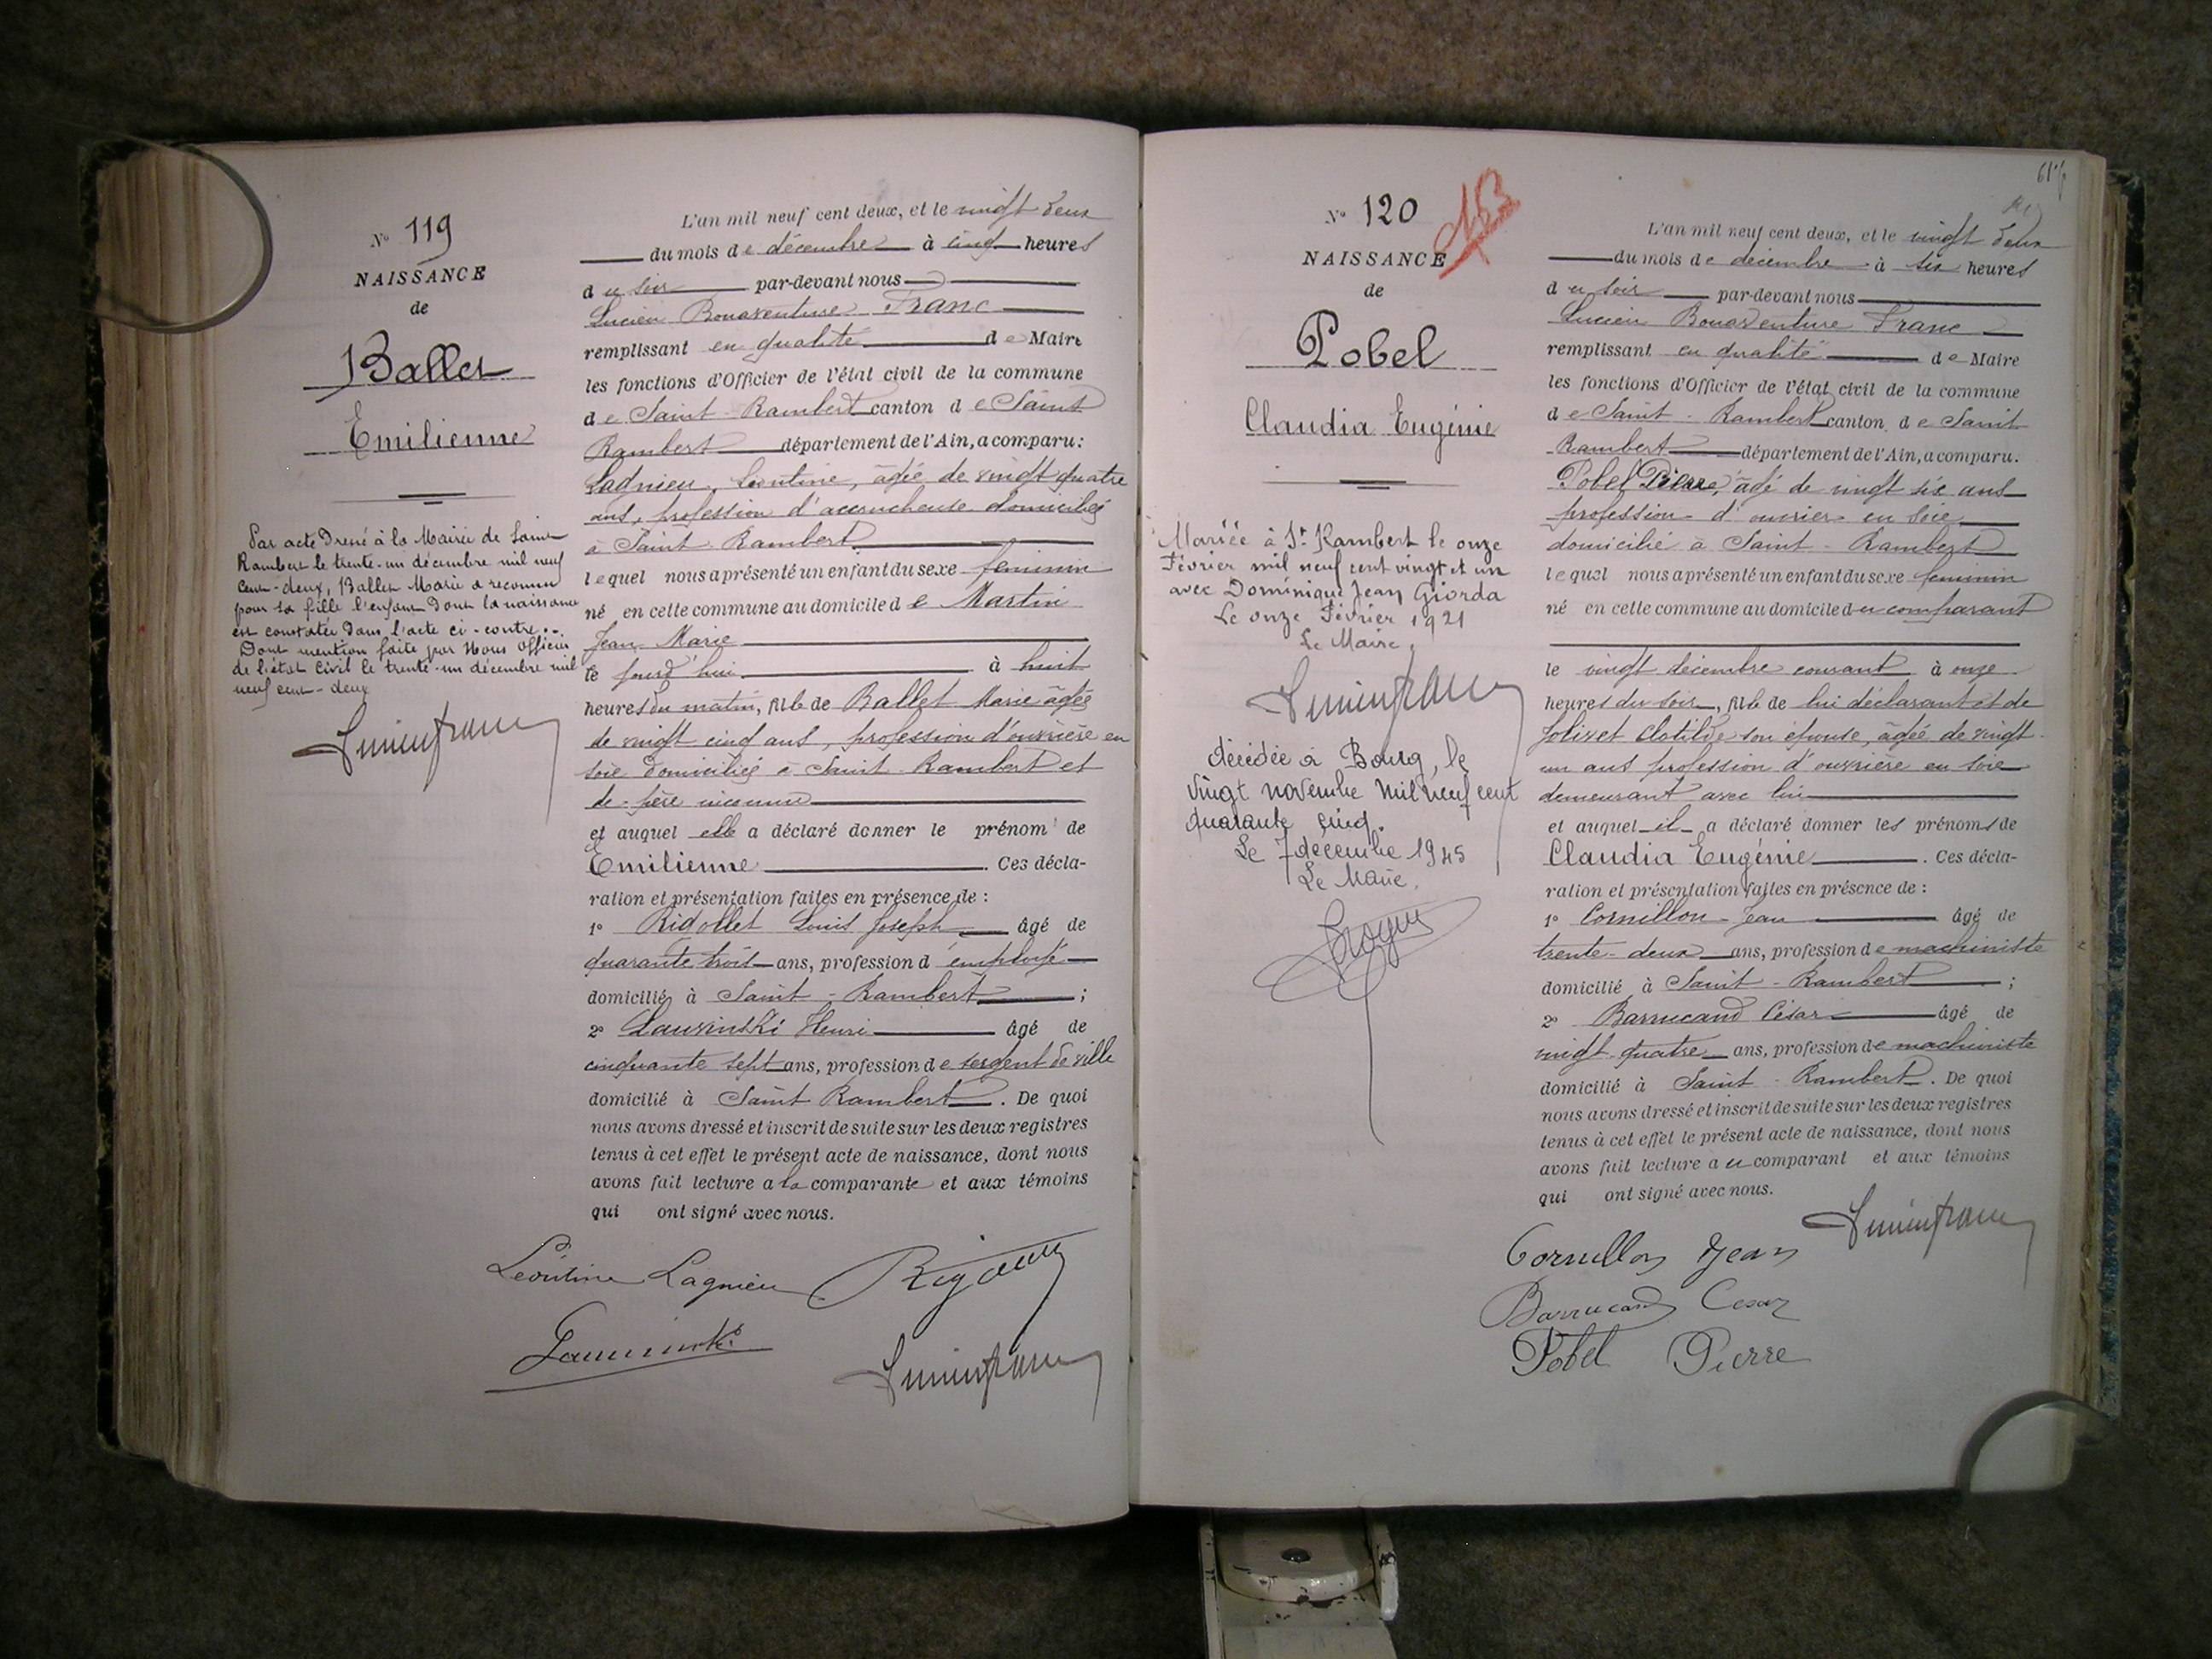 Nº 119
NAISSANCE
de
Ballet
Emilienne
Par acte dressé à la Mairie de Saint
Rambert le trente-un décembre mil neuf
cent-deux, Ballet Marie a reconnu
pour sa fille l'enfant dont la naissance
est constatée dans l'acte ci-contre.-
Dont mention faite par Nous Officier
de l'état Civil le trente-un décembre mil
neuf cent-deux
Lucien Franc
L'an mil neuf cent deux, et le vingt deux
du mois de décembre à cinq heures
du soir par-devant nous
Lucien Bonaventure Franc
remplissant en qualité de Maire
les fonctions d'Officier de l'état civil de la commune
de Saint-Rambert canton de Saint
Rambert département de l'Ain, a comparu:
Lagnieu, Léontine, âgée de vingt quatre
ans, profession d'accoucheuse domiciliée
à Saint-Rambert
lequel nous a présenté un enfant du sexe féminin
né en cette commune au domicile de Martin
Jean Marie
le jourd'hui à huit
heures du matin, fille de Ballet Marie âgée
de vingt cinq ans, profession d'ouvrière en
soie domiciliée à Saint-Rambert et
de père inconnu
et auquel elle a déclaré donner le prénom de
Emilienne. Ces décla-
ration et présentation faites en présence de :
1º Rigollet Louis Joseph âgé de
quarante trois ans, profession d'employé
domicilié à Saint-Rambert ;
2º Lawinski Henri âgé de
cinquante sept ans, profession de sergent de ville
domicilié à Saint Rambert. De quoi
nous avons dressé et inscrit de suite sur les deux registres
tenus à cet effet le présent acte de naissance, dont nous
avons fait lecture a la comparante et aux témoins
qui ont signé avec nous.
Léontine Lagnieu
Lucien Franc
Nº 120
NAISSANCE
de
Pobel
Claudia Eugénie
Mariée à St Rambert le onze
Février mil neuf cent vingt et un
avec Dominique Jean Giorda
Le onze Février 1921
Le Maire,
Lucien Franc
décédée à Bourg, le
vingt novembre mil neuf cent
quarante cinq.
Le 7 décembre 1945
Le Maire,
L'an mil neuf cent deux, et le vingt deux
du mois de décembre à six heures
du soir par-devant nous
Lucien Bonaventure Franc
remplissant en qualité de Maire
les fonctions d'Officier de l'état civil de la commune
de Saint-Rambert canton de Saint
Rambert département de l'Ain, a comparu.
Pobel Pierre, âgé de vingt six ans
profession d'ouvrier en soie
domicilié à Saint-Rambert
lequel nous a présenté un enfant du sexe féminin
né en cette commune au domicile du comparant
le vingt décembre courant à onze
heures du soir, fille de lui déclarant et de
Jolivet Clotilde son épouse, âgée de vingt
un ans profession d'ouvrière en soie
demeurant avec lui
et auquel il a déclaré donner les prénoms de
Claudia Eugénie. Ces décla-
ration et présentation faites en présence de :
1º Cornillon Jean âgé de
trente-deux ans, profession de machiniste
domicilié à Saint-Rambert ;
2º Barrucand César âgé de
vingt quatre ans, profession de machiniste
domicilié à Saint-Rambert. De quoi
nous avons dressé et inscrit de suite sur les deux registres
tenus à cet effet le présent acte de naissance, dont nous
avons fait lecture au comparant et aux témoins
qui ont signé avec nous.
Lucien Franc
Cornillon Jean
Barrucand Cesar
Pobel Pierre